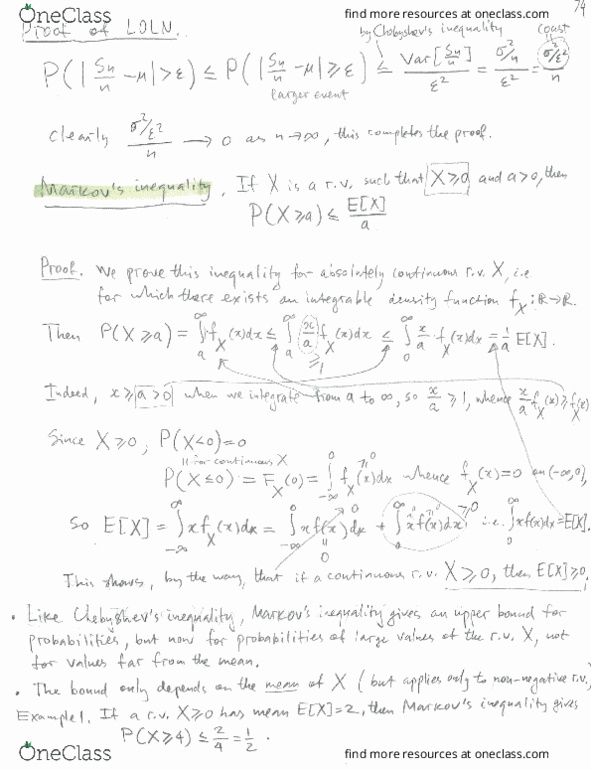 OneClass find more resources at oneclass.com
74
Proof of LOLN. by Chebyshev's inequality const
P(|Sn/n − μ| > ε) ≤ P(|Sn/n − μ| ≥ ε) ≤ Var[Sn/n]/ε² = (σ²/n)/ε² = (σ²/ε²)/n
larger event
clearly (σ²/ε²)/n → 0 as n→∞, this completes the proof.
Markov's inequality. If X is a r.v. such that X ≥ 0 and a > 0, then
P(X ≥ a) ≤ E[X]/a
Proof. We prove this inequality for absolutely continuous r.v. X, i.e
for which there exists an integrable density function f_X : ℝ→ℝ.
Then P(X ≥ a) = ∫_a^∞ f_X(x)dx ≤ ∫_a^∞ (x/a) f_X(x)dx ≤ ∫_0^∞ x/a · f_X(x)dx = 1/a E[X].
≥ 1
Indeed, x ≥ a > 0 when we integrate from a to ∞, so x/a ≥ 1, whence x/a f_X(x) ≥ f_X(x)
Since X ≥ 0, P(X<0) = 0
|| for continuous X
P(X ≤ 0) = F_X(0) = ∫_{-∞}^0 f_X(x)dx whence f_X(x) = 0 on (-∞,0],
So E[X] = ∫_{-∞}^∞ x f_X(x)dx = ∫_{-∞}^0 x f(x)dx + ∫_0^∞ x f(x)dx ≥ 0 i.e. ∫_0^∞ x f(x)dx = E[X].
|| 0
This shows, by the way, that if a continuous r.v. X ≥ 0, then E[X] ≥ 0.
• Like Chebyshev's inequality, Markov's inequality gives an upper bound for
probabilities, but now for probabilities of large values of the r.v. X, not
for values far from the mean.
• The bound only depends on the mean of X (but applies only to non-negative r.v.)
Example 1. If a r.v. X ≥ 0 has mean E[X] = 2, then Markov's inequality gives
P(X ≥ 4) ≤ 2/4 = 1/2.
OneClass find more resources at oneclass.com